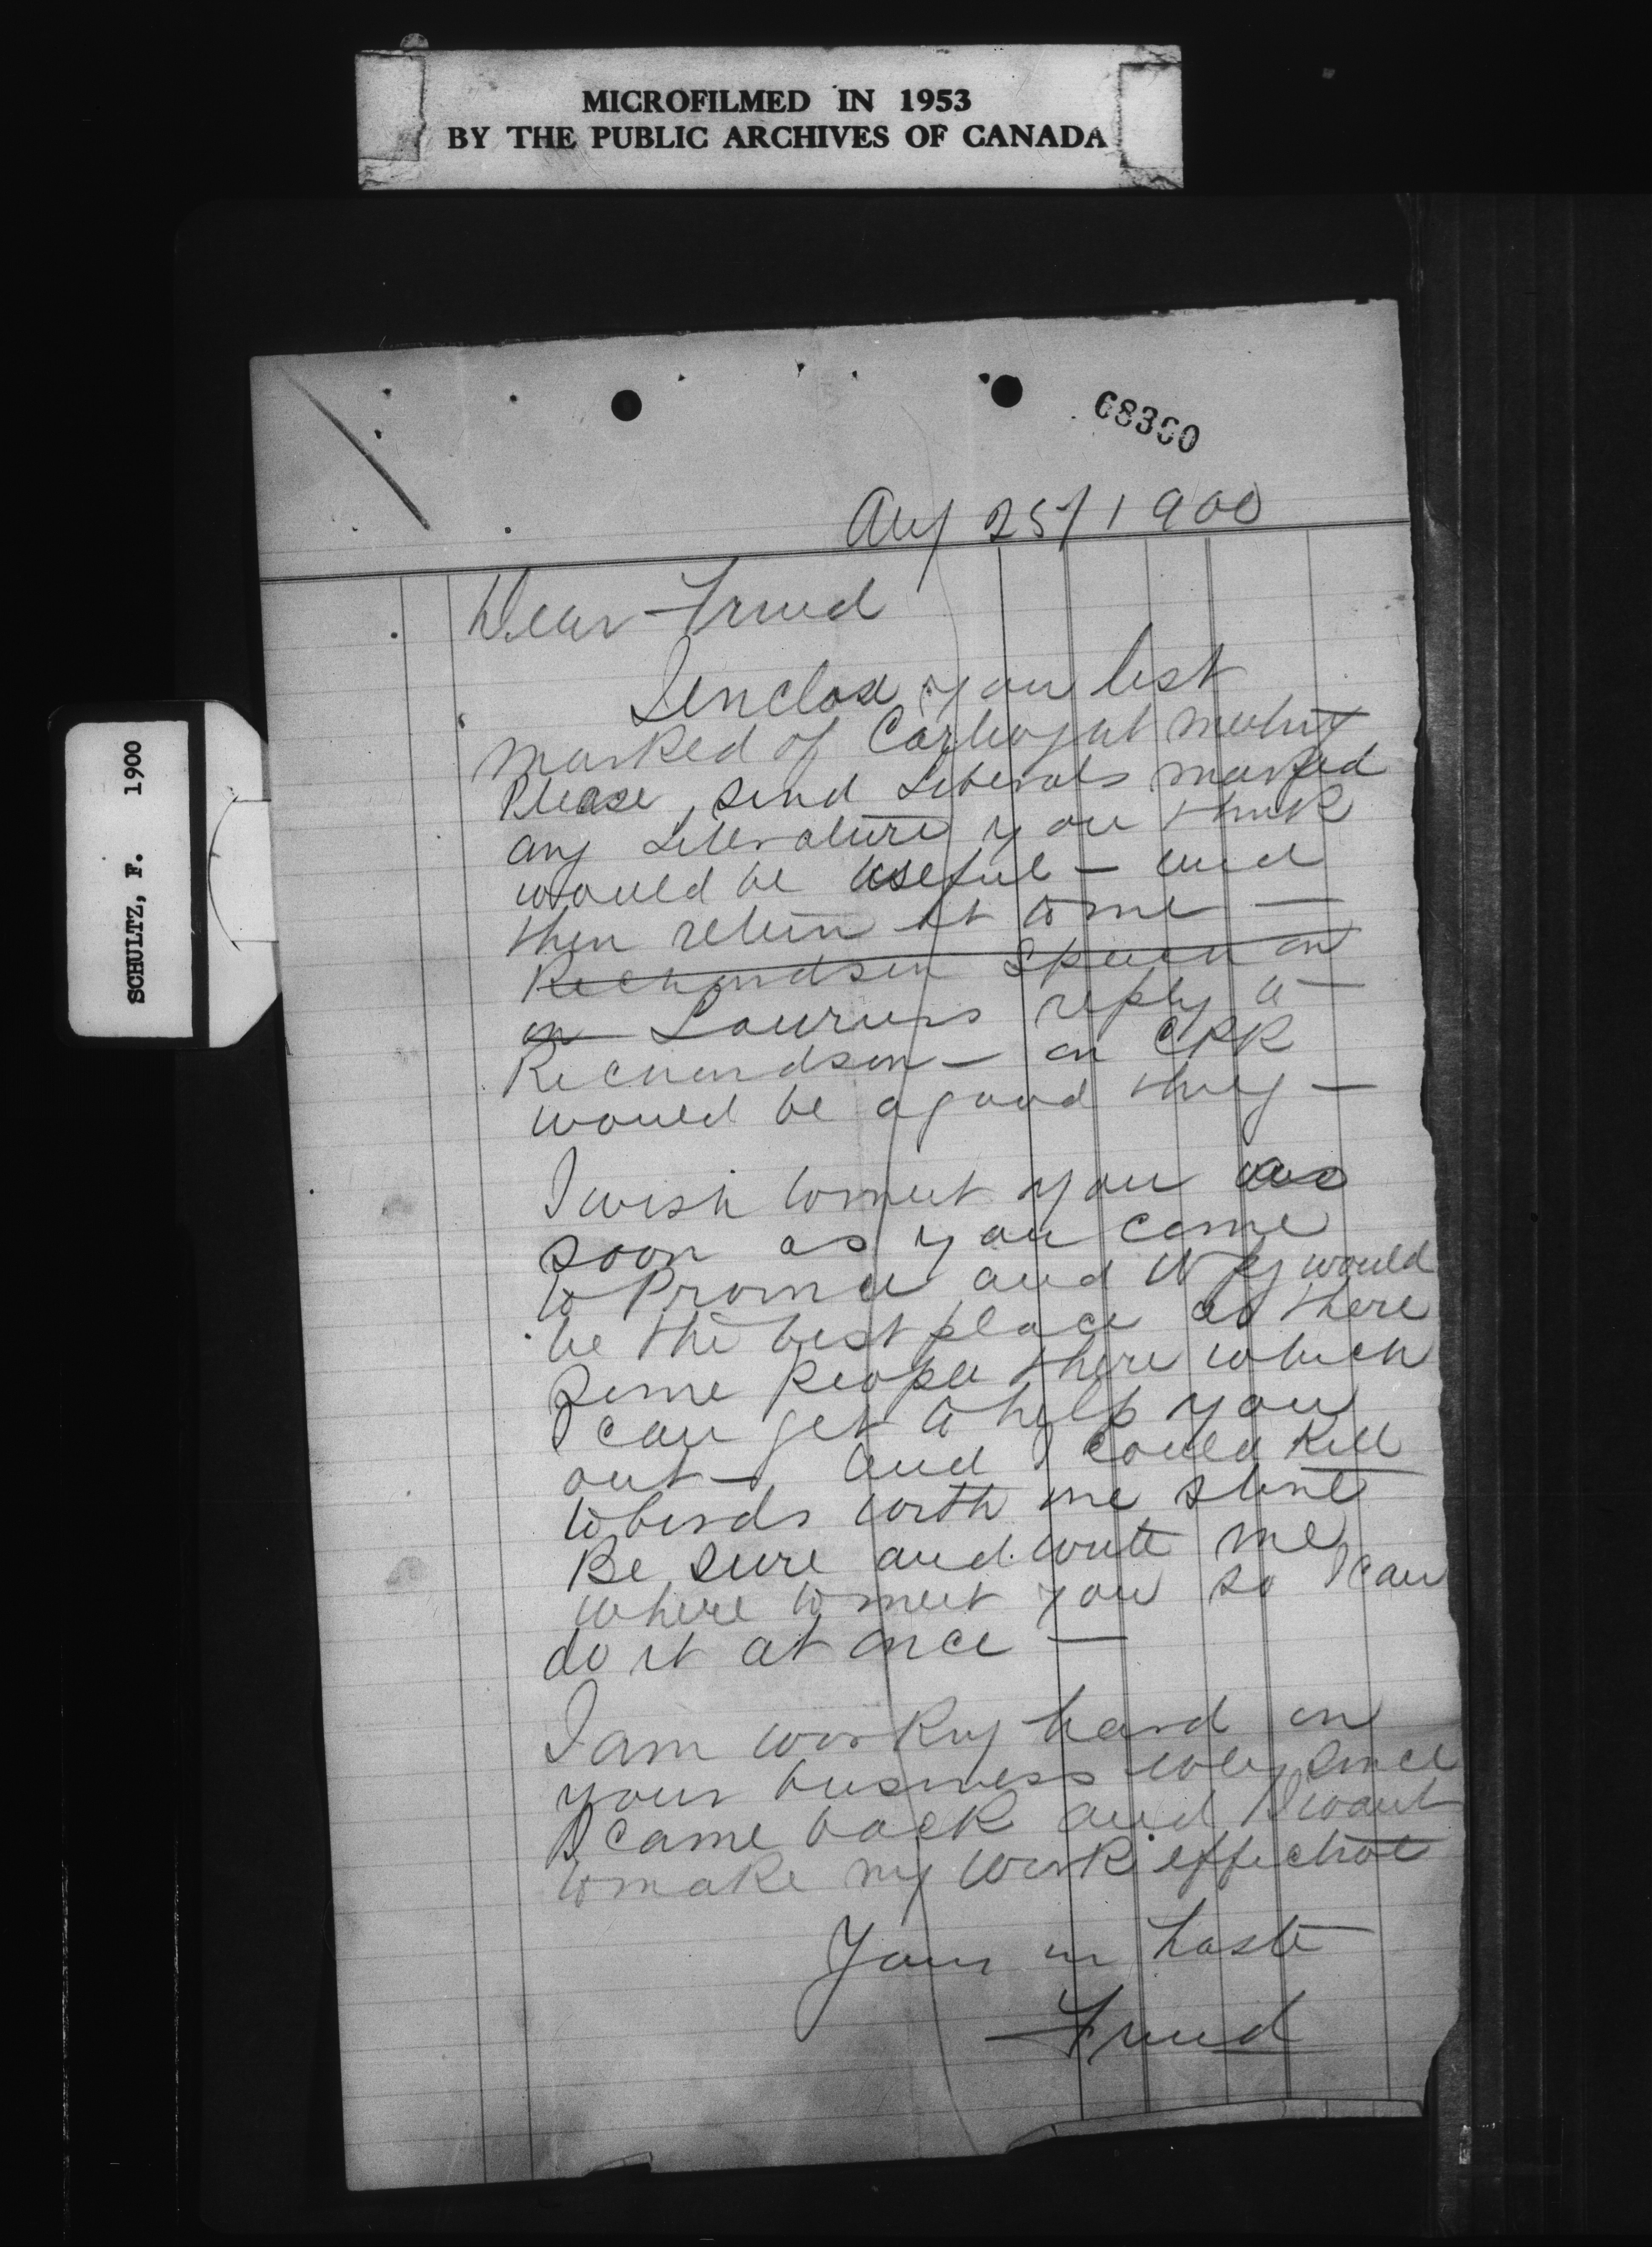 MICROFILMED IN 1953
BY THE PUBLIC ARCHIVES OF CANADA
SCHULTZ, F. 1900
68360
Aug 25/1900
Dear Friend
I enclose you list
marked of
Please send Liberals marked
any Literature you think
would be useful – and
then return it to me –
Richardson Speech on
on Lauriers reply to –
Richardson – on CPR
would be a good thing –
I wish to meet you as
soon as you come
to Province and Wpg would
be the best place as there
some people there which
I can get to help you
out – and I could kill
to birds with one stone
Be sure and write me
where to meet you so I can
do it at once –
I am working hard on
your business since
I came back and I want
to make my work effective
Yours in haste
Friend